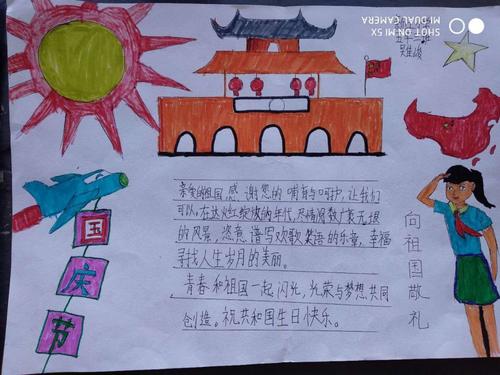 SHOT ON MI 5X
MI DUAL CAMERA
亲爱的祖国感谢您的哺育与呵护，让我们
可以在这火红绽放的年代，尽情阅数广袤无垠
的风景，恣意谱写欢歌笑语的乐章，幸福
寻找人生岁月的美丽。
青春和祖国一起闪光，光荣与梦想共同
创造。祝共和国生日快乐。
国庆节
向祖国敬礼